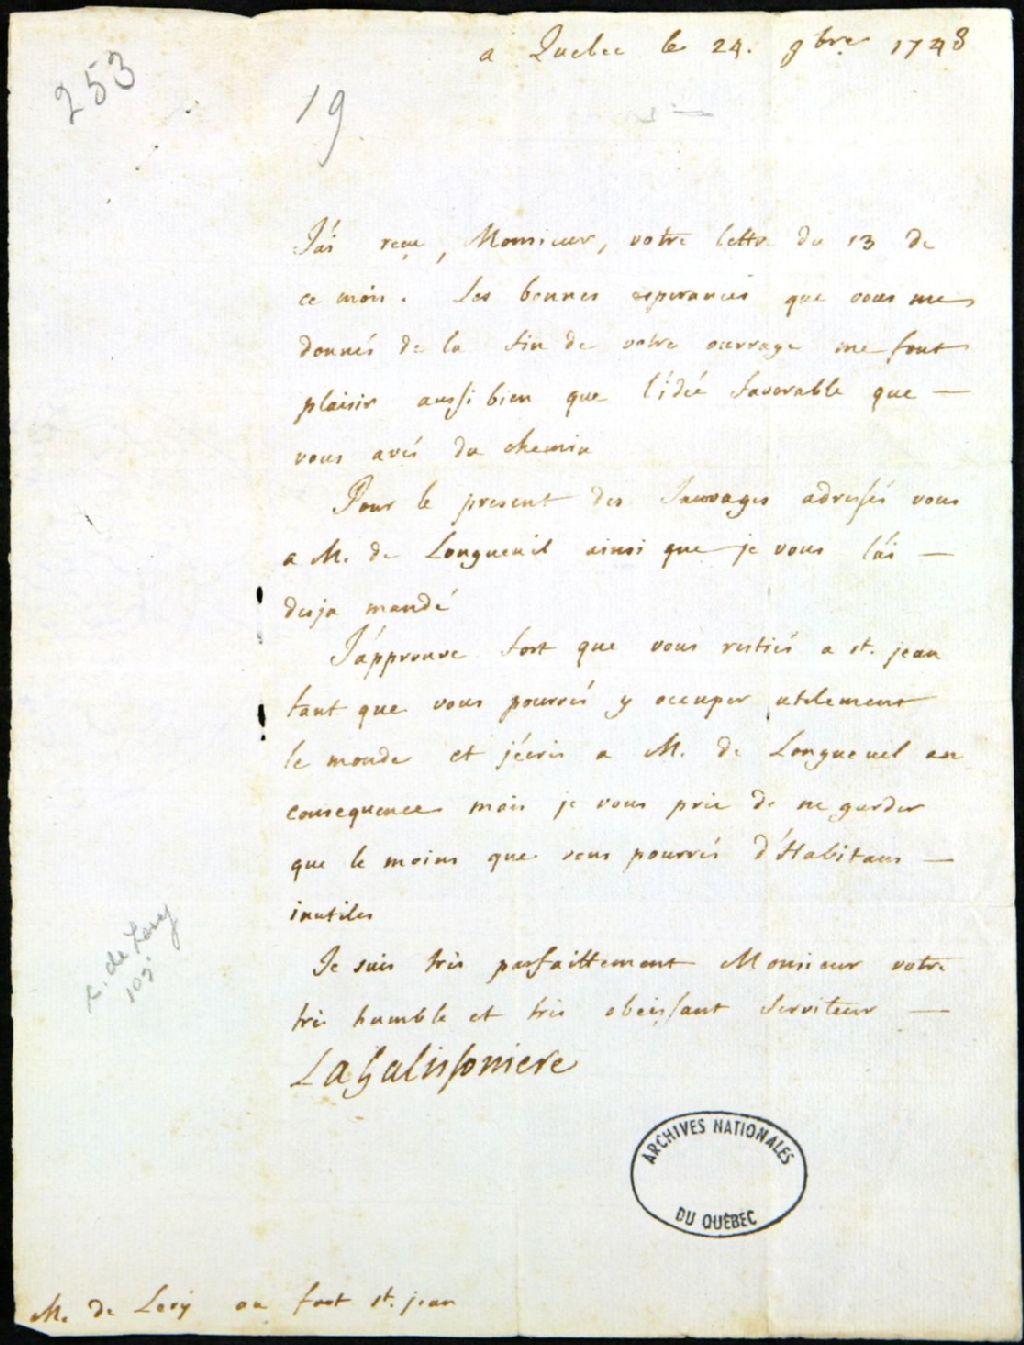 253
19
a Quebec le 24. 9bre 1748
J'ai reçu, Monsieur, votre lettre du 13 de
ce mois. Les bonnes esperances que vous me
donnés de la fin de votre ouvrage me font
plaisir aussi bien que l'idée favorable que —
vous avés du chemin
Pour le present des Sauvages adressés vous
a M. de Longueuil ainsi que je vous l'ai —
deja mandé
J'approuve fort que vous restiés a st. jean
tant que vous pourrés y occuper utilement
le monde et j'écris a M. de Longueuil en
consequence mais je vous prie de ne garder
que le moins que vous pourrés d'Habitans —
inutiles
Je suis très parfaittement Monsieur votre
très humble et très obeissant serviteur —
LaGalissoniere
de Lery
ARCHIVES NATIONALES
DU QUÉBEC
M. de Lery au fort st. jean